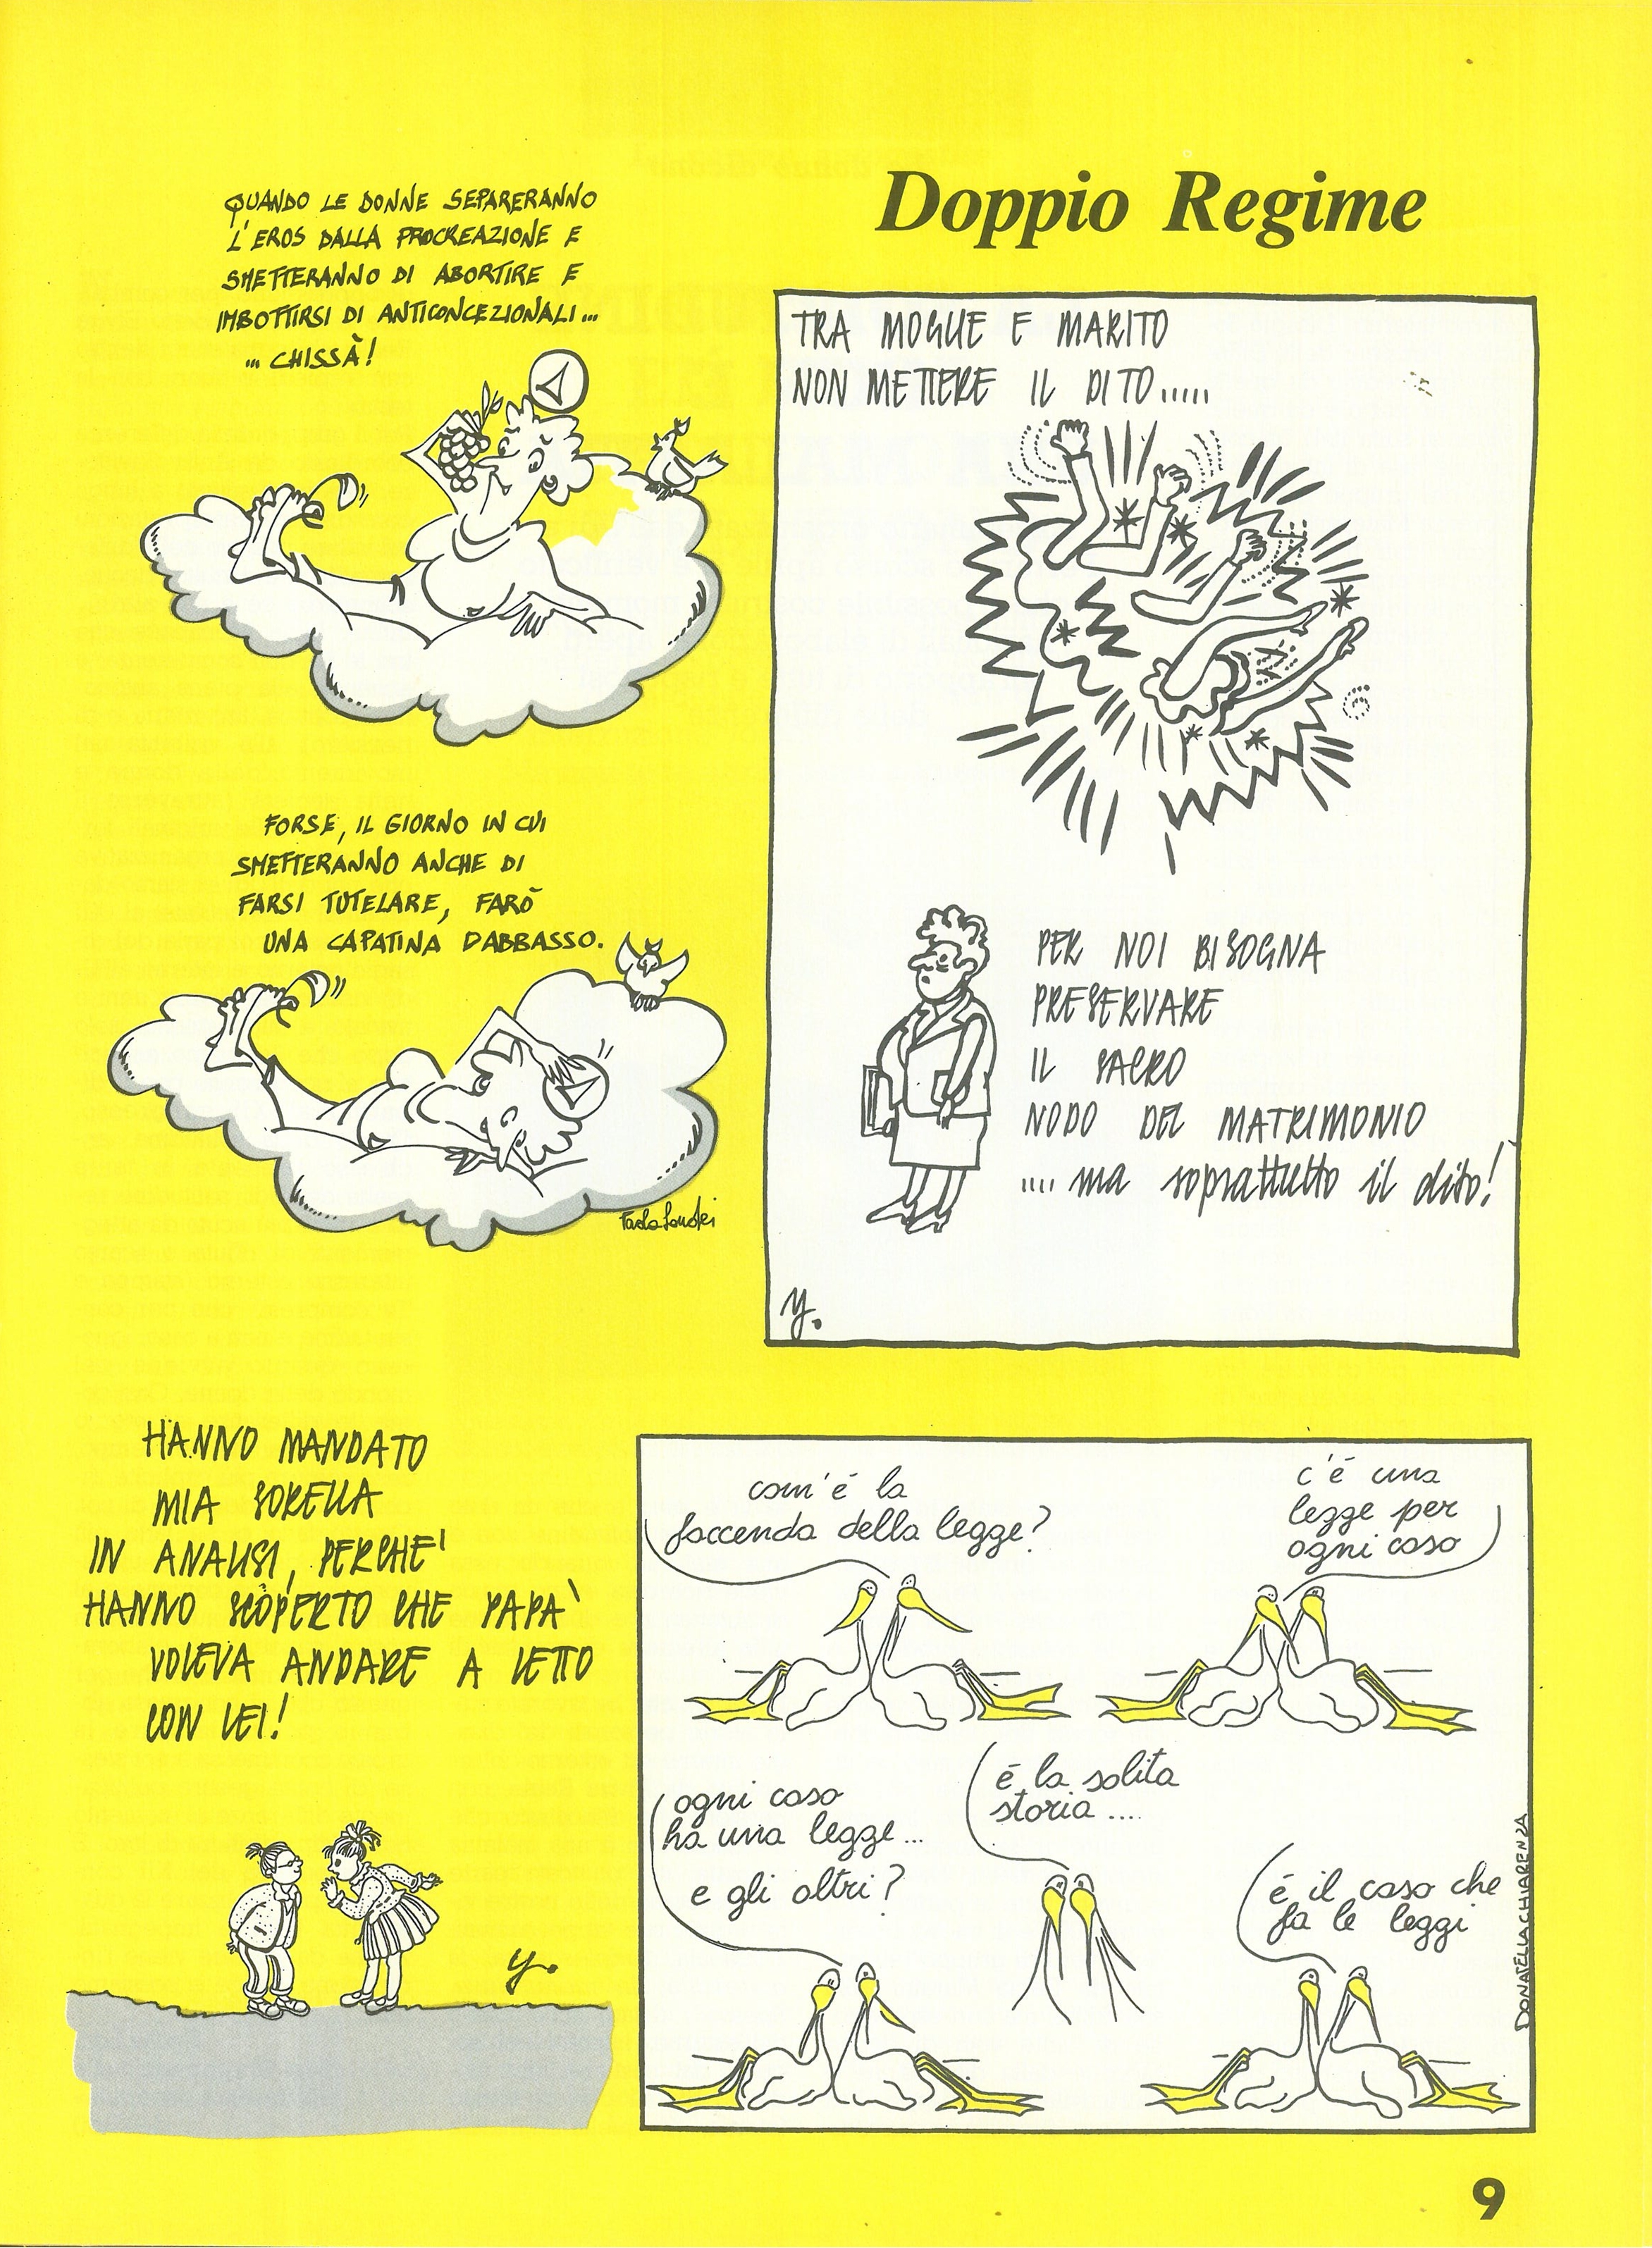 Doppio Regime
QUANDO LE DONNE SEPARERANNO
L'EROS DALLA PROCREAZIONE E
SMETTERANNO DI ABORTIRE E
IMBOTTIRSI DI ANTICONCEZIONALI...
... CHISSÀ!
FORSE, IL GIORNO IN CUI
SMETTERANNO ANCHE DI
FARSI TUTELARE, FARÒ
UNA CAPATINA DABBASSO.
TRA MOGLIE E MARITO
NON METTERE IL DITO.....
PER NOI BISOGNA
PRESERVARE
IL SACRO
NODO DEL MATRIMONIO
.... ma soprattutto il dito!
y.
HANNO MANDATO
MIA SORELLA
IN ANALISI, PERCHE'
HANNO SCOPERTO CHE PAPA'
VOLEVA ANDARE A LETTO
CON LEI!
y.
com'é la
faccenda della legge?
c'é una
legge per
ogni caso
ogni caso
ha una legge...
e gli altri?
é la solita
storia ....
é il caso che
fa le leggi
DONATELLA CHIARENZA
9